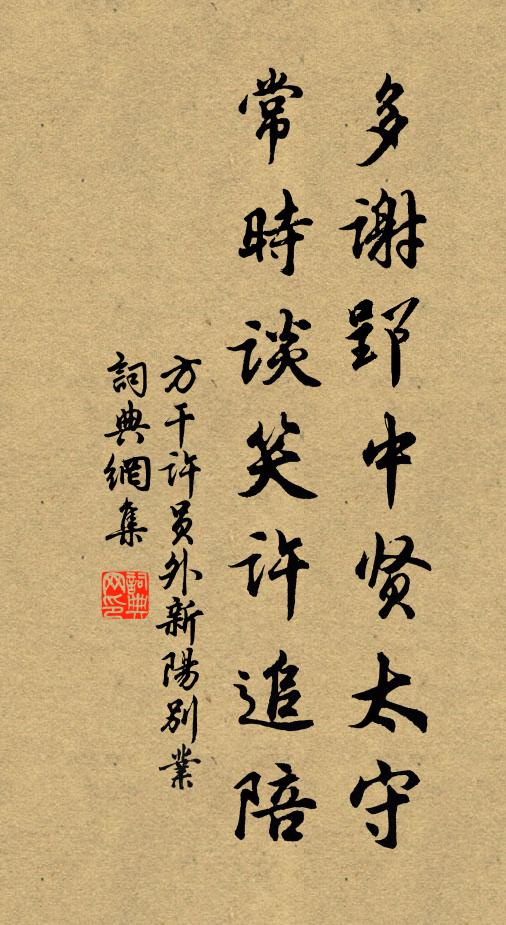 多谢郢中贤太守
常時談笑许追陪
方干许員外新陽别業
詞典網集
詞典
网印